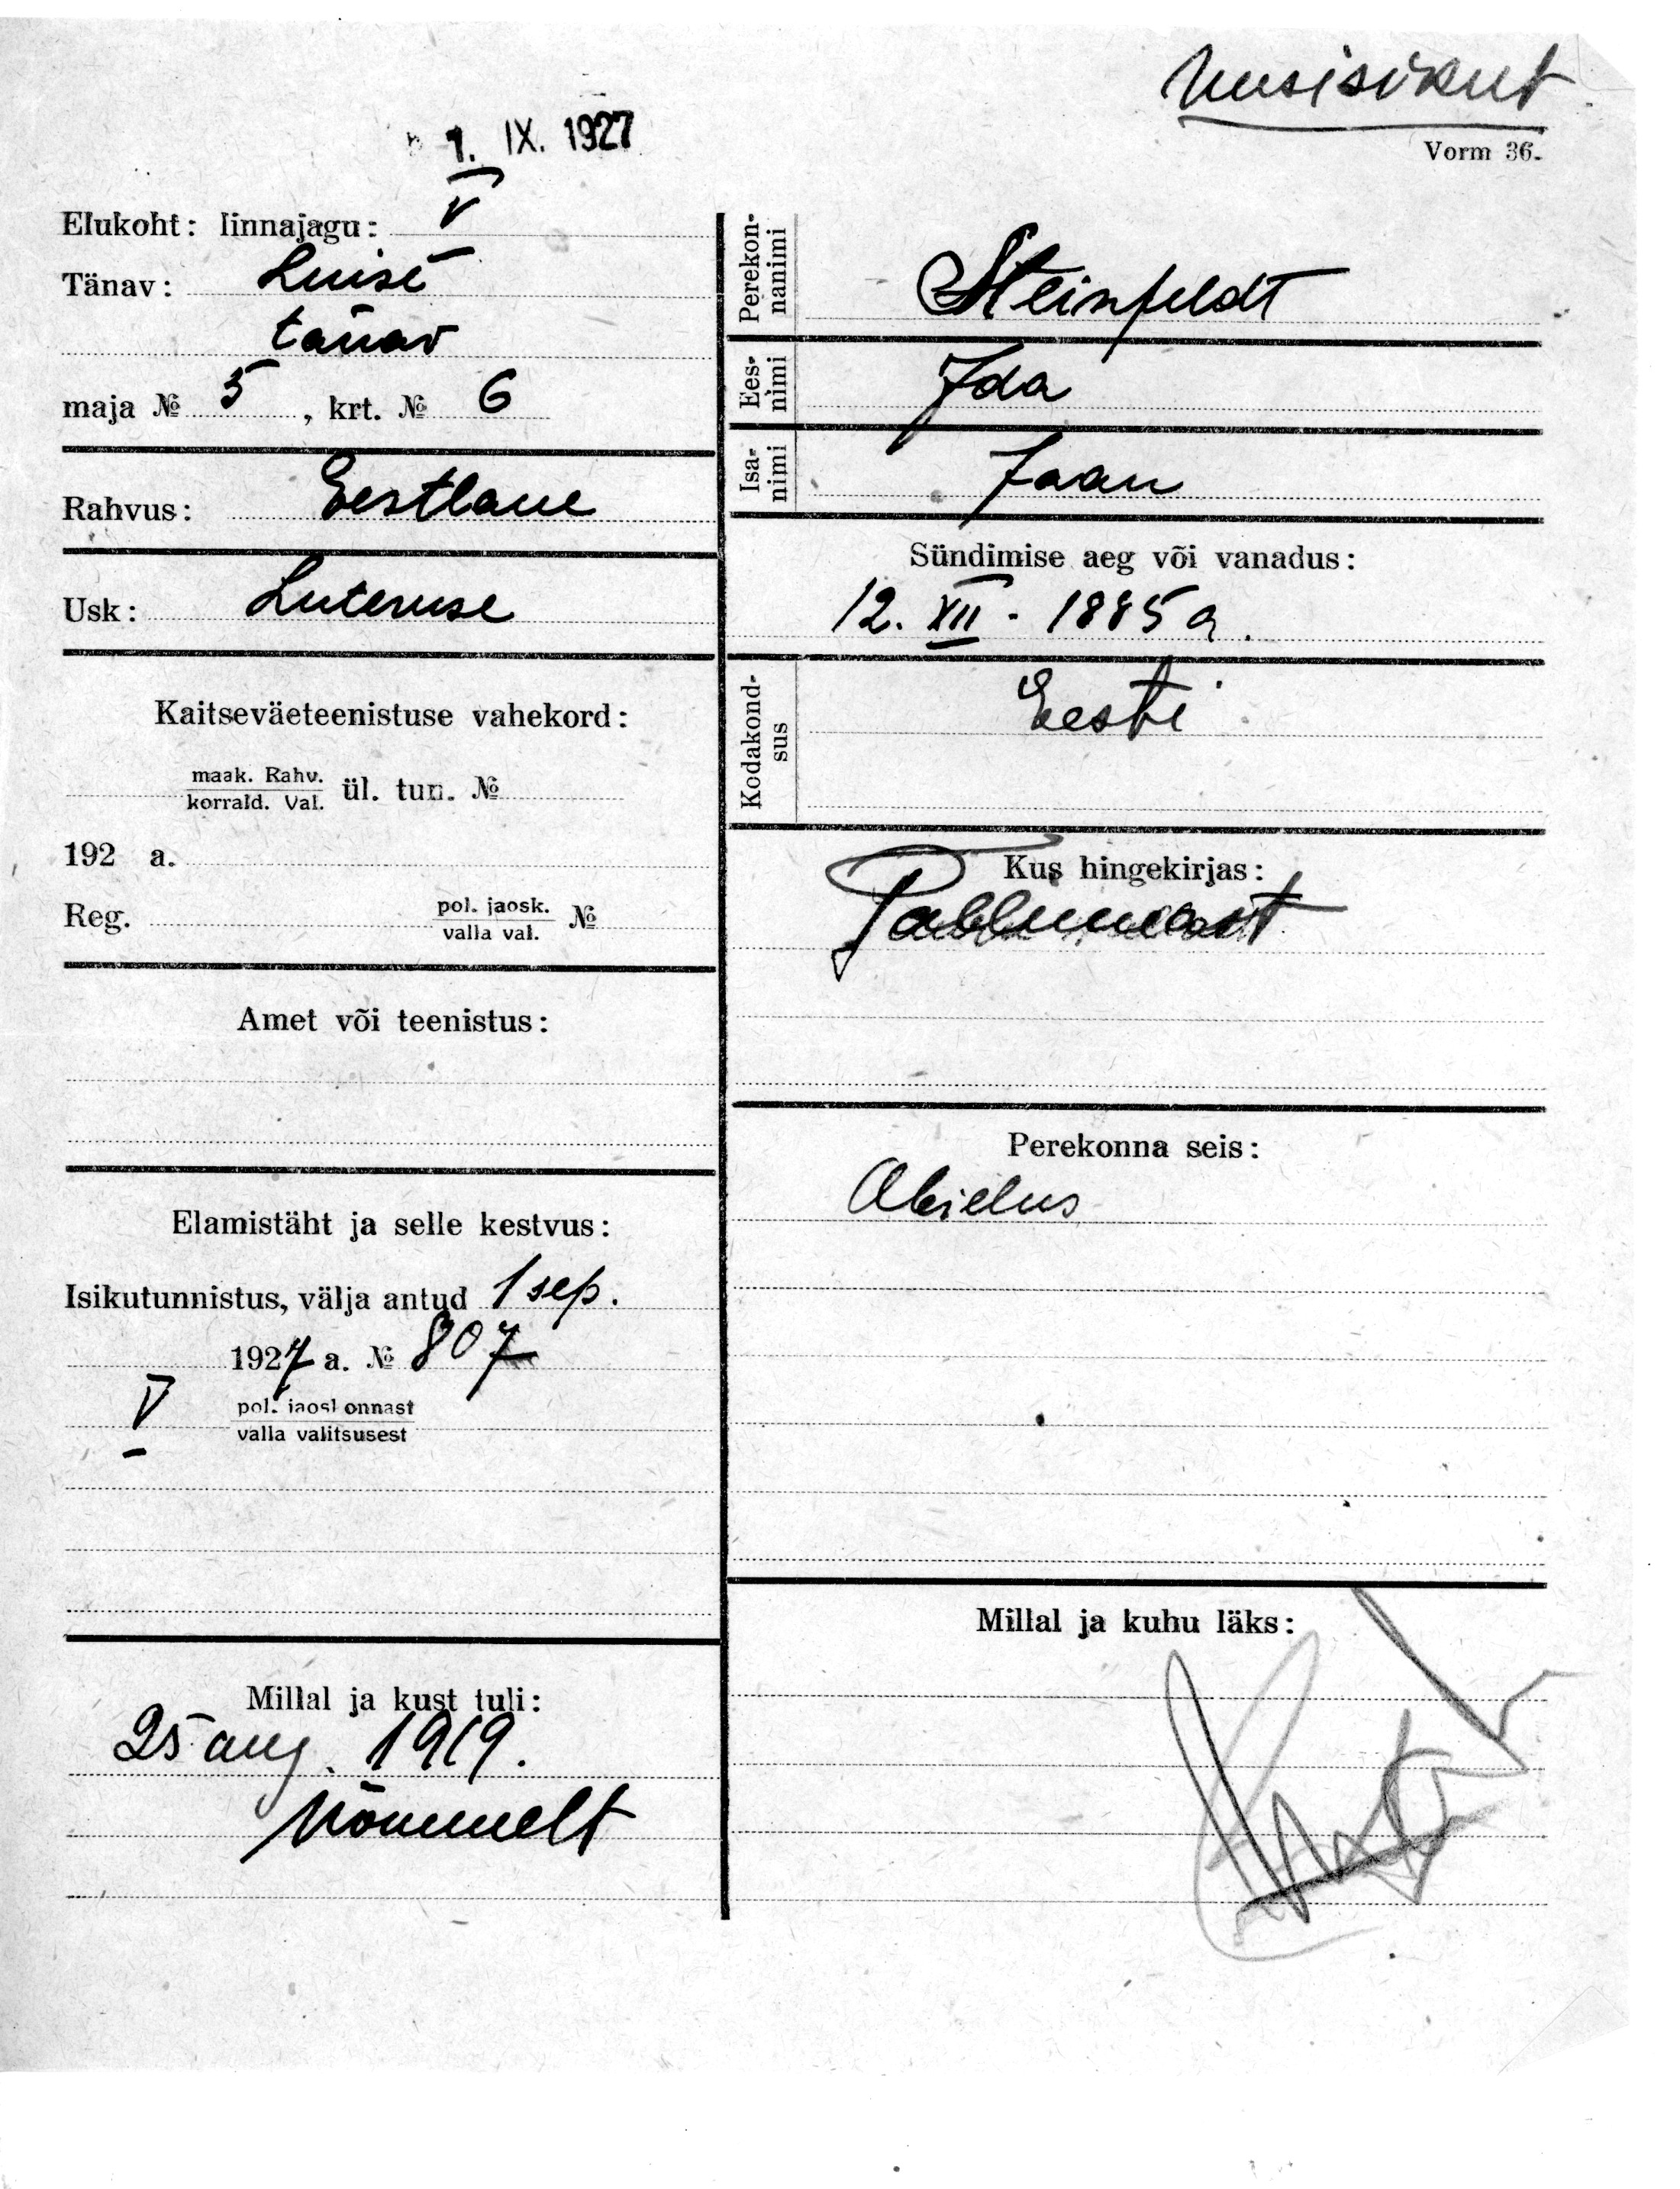 Uusisikut
1. IX. 1927
Vorm 36.
Elukoht: linnajagu: V
Tänav: Luise
tänav
maja № 5, krt. № 6
Rahvus: Eestlane
Usk: Luteruse
Kaitseväeteenistuse vahekord:
maak. Rahv.
korrald. Val. ül. tun. №
192 a.
Reg. pol. jaosk.
valla val. №
Amet või teenistus:
Elamistäht ja selle kestvus:
Isikutunnistus, välja antud 1 sep.
1927 a. № 807
V pol. jaoskonnast
valla valitsusest
Millal ja kust tuli:
25 aug. 1919.
Nõmmelt
Perekon-
nanimi Steinfeldt
Ees-
nimi Ida
Isa-
nimi Jaan
Sündimise aeg või vanadus:
12. XII. 1885 a.
Kodakond-
sus Eesti
Kus hingekirjas:
Perekonna seis:
Abielus
Millal ja kuhu läks: